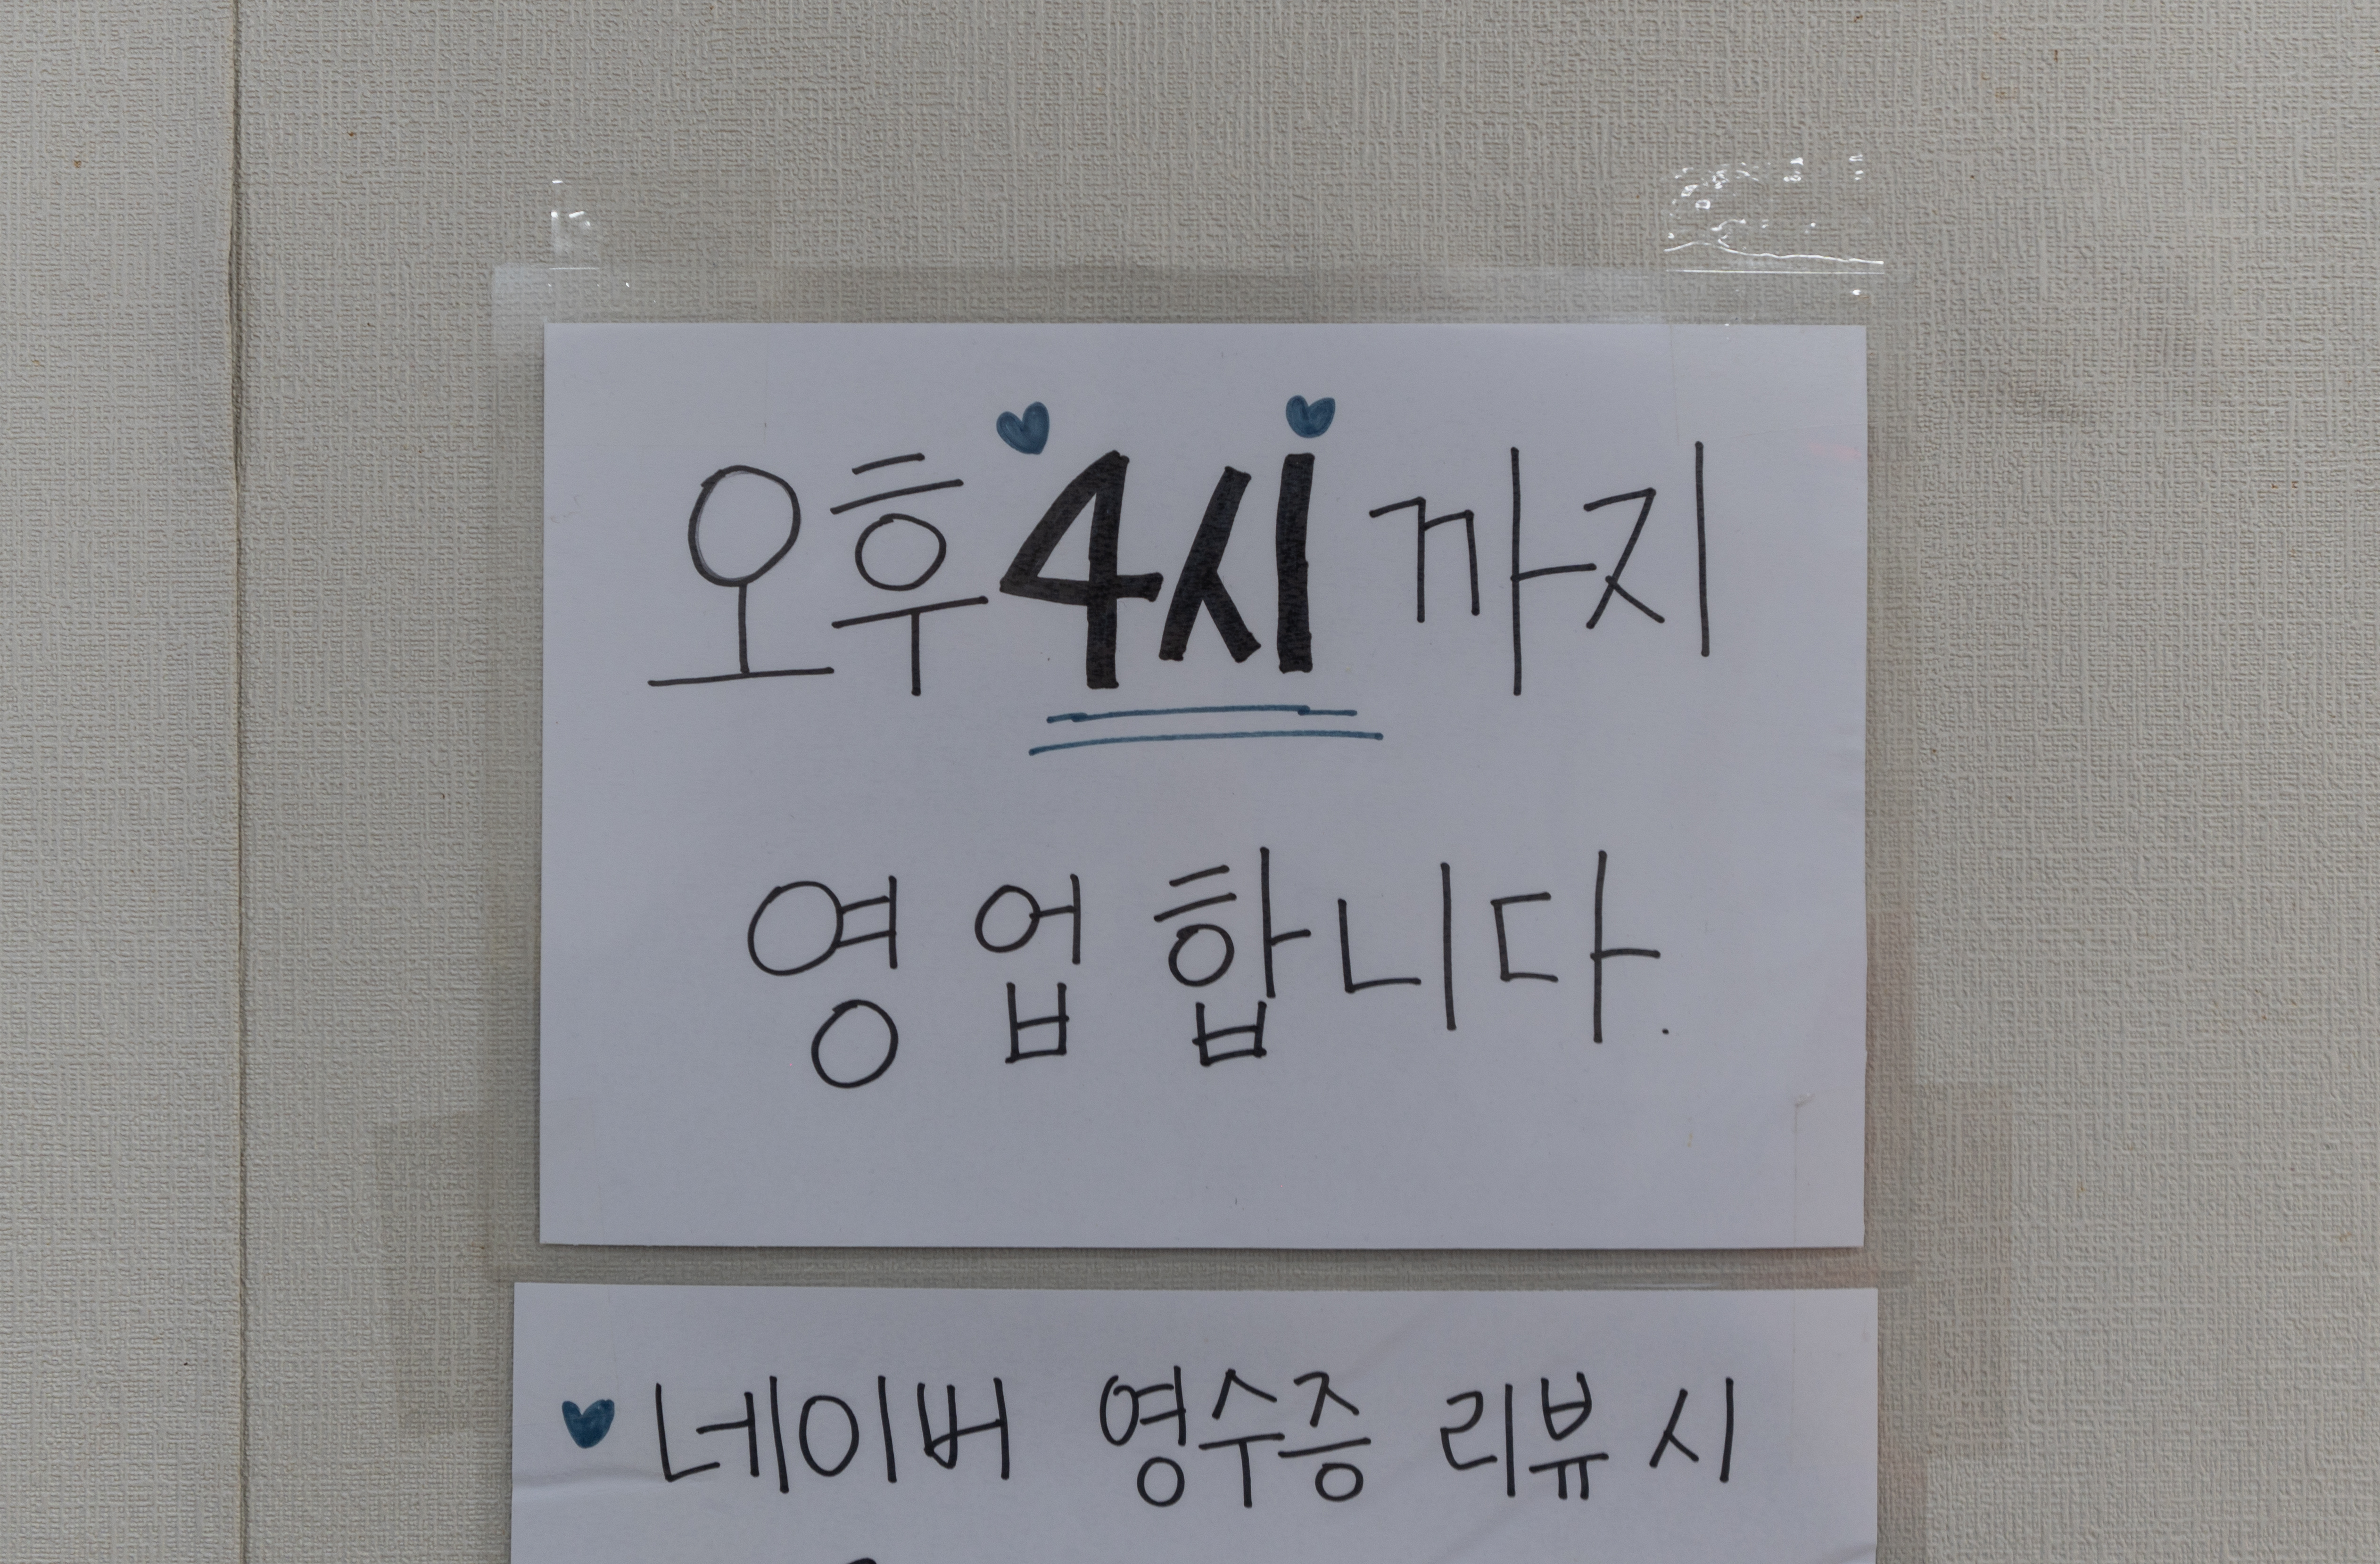 오후 4시까지
영업합니다.
네이버 영수증 리뷰 시